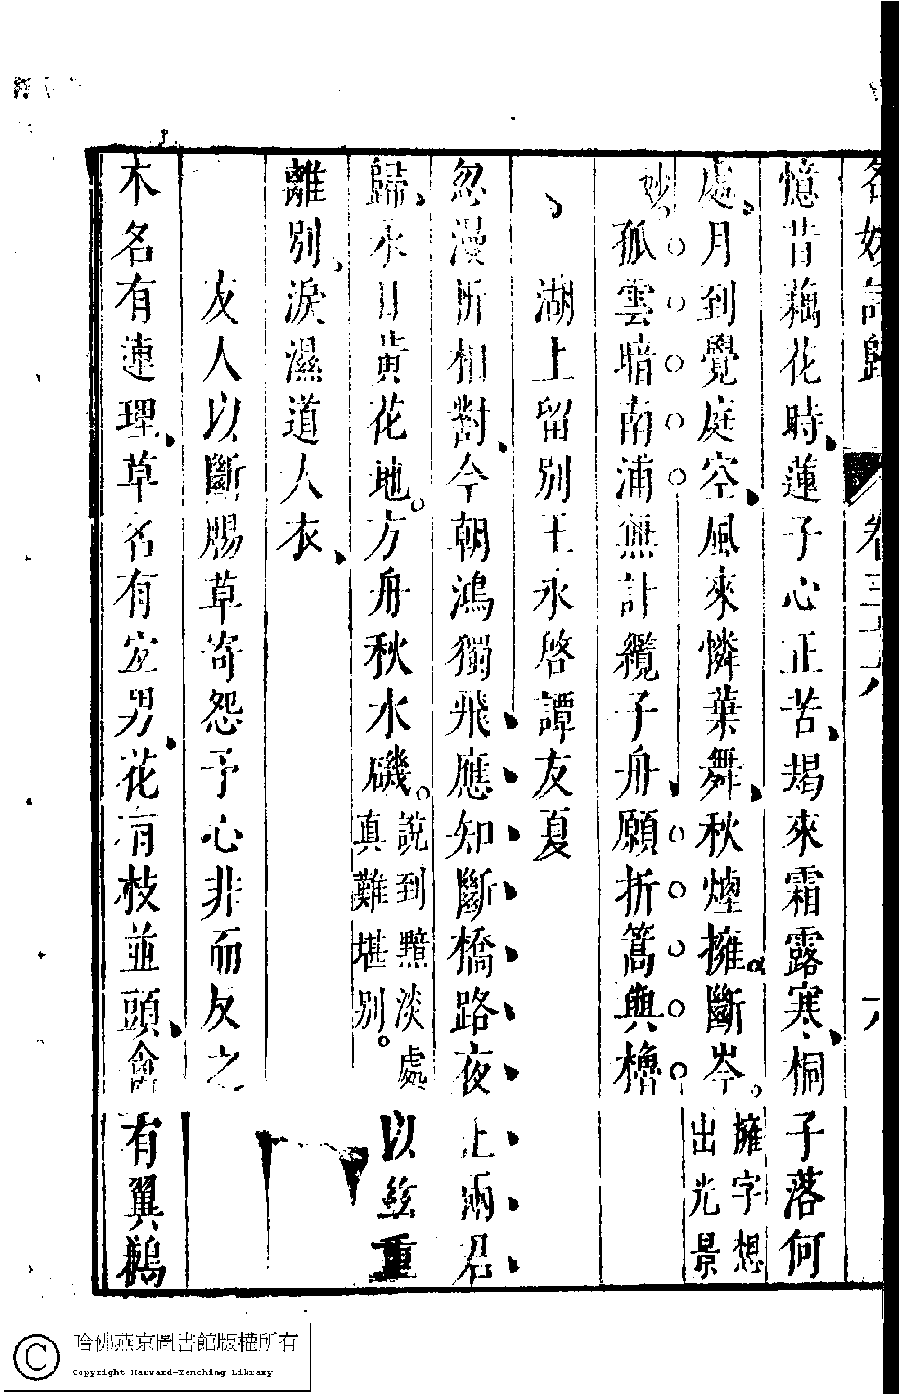 名媛詩歸 卷三十六 六
憶昔藕花時蓮子心正苦朅來霜露寒桐子落何
處月到覺庭空風來憐葉舞秋煙擁斷岑擁字想出光景
妙
孤雲暗南浦無計纜子舟願折篙與櫓
湖上留別王永啓譚友夏
忽漫忻相對今朝鴻獨飛應知斷橋路夜上兩君
歸永日黃花地方舟秋水磯說到黯淡處真難堪別以玆重
離別淚濕道人衣
友人以斷腸草寄怨予心非而反之
木名有連理草名有宜男花有枝並頭禽有翼鶼
哈佛燕京圖書館版權所有
Copyright Harvard-Yenching Library